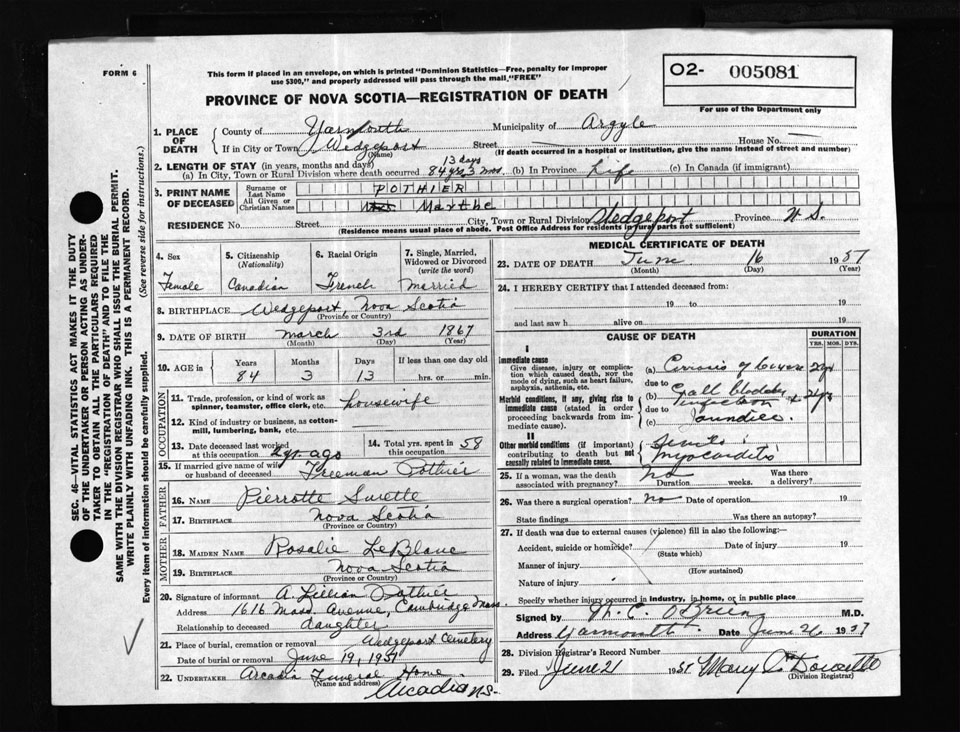 FORM 6
This form if placed in an envelope, on which is printed "Dominion Statistics—Free, penalty for improper
use $300," and properly addressed will pass through the mail, "FREE"
O2- 005081
For use of the Department only
PROVINCE OF NOVA SCOTIA—REGISTRATION OF DEATH
1. PLACE OF DEATH
County of Yarmouth Municipality of Argyle
If in City or Town Wedgeport Street House No.
(Name) (If death occurred in a hospital or institution, give the name instead of street and number)
2. LENGTH OF STAY (in years, months and days) 13 days
(a) In City, Town or Rural Division where death occurred 84 yrs 3 mos. (b) In Province Life (c) In Canada (if immigrant)
3. PRINT NAME OF DECEASED
Surname or Last Name POTHIER
All Given or Christian Names Marthe
RESIDENCE No. Street City, Town or Rural Division Wedgeport Province N S.
(Residence means usual place of abode. Post Office Address for residents in rural parts not sufficient)
4. Sex Female
5. Citizenship (Nationality) Canadian
6. Racial Origin French
7. Single, Married, Widowed or Divorced (write the word) married
8. BIRTHPLACE Wedgeport, Nova Scotia
(Province or Country)
9. DATE OF BIRTH March 3rd 1867
(Month) (Day) (Year)
10. AGE in Years Months Days If less than one day old
84 3 13 hrs. or min.
OCCUPATION
11. Trade, profession, or kind of work as
spinner, teamster, office clerk, etc. housewife
12. Kind of industry or business, as cotton-
mill, lumbering, bank, etc.
13. Date deceased last worked
at this occupation 2 yr. ago
14. Total yrs. spent in
this occupation 58
15. If married give name of wife
or husband of deceased Freeman Pothier
FATHER
16. NAME Pierrotte Surette
17. BIRTHPLACE Nova Scotia
(Province or Country)
MOTHER
18. MAIDEN NAME Rosalie LeBlanc
19. BIRTHPLACE Nova Scotia
(Province or Country)
20. Signature of informant A. Lillian Pothier
Address 1616 Mass. Avenue, Cambridge, Mass.
Relationship to deceased daughter
21. Place of burial, cremation or removal Wedgeport Cemetery
Date of burial or removal June 19, 1951
22. UNDERTAKER Arcadia Funeral Home
(Name and address) Arcadia N.S.
MEDICAL CERTIFICATE OF DEATH
23. DATE OF DEATH June 16 1951
(Month) (Day) (Year)
24. I HEREBY CERTIFY that I attended deceased from:
19 to 19
and last saw h alive on 19
CAUSE OF DEATH
DURATION
YRS. MOS. DYS.
I
Immediate cause
Give disease, injury or complica-
tion which caused death, NOT the
mode of dying, such as heart failure,
asphyxia, asthenia, etc.
(a) of 2 yrs
due to
Morbid conditions, if any, giving rise to
immediate cause (stated in order
proceeding backwards from im-
mediate cause).
(b) Gall bladder
infection 2 yrs
due to
(c) Jaundice
II
Other morbid conditions (if important)
contributing to death but not
causally related to immediate cause.
Senility
myocarditis
25. If a woman, was the death
associated with pregnancy? No Duration weeks. Was there
a delivery?
26. Was there a surgical operation? no Date of operation 19
State findings Was there an autopsy?
27. If death was due to external causes (violence) fill in also the following:—
Accident, suicide or homicide? Date of injury 19
(State which)
Manner of injury
(How sustained)
Nature of injury
Specify whether injury occurred in industry, in home, or in public place
Signed by M. C. O'Brien M.D.
Address Yarmouth Date June 26 1957
28. Division Registrar's Record Number
29. Filed June 21 1951 Mary Doucette
(Division Registrar)
SEC. 46—VITAL STATISTICS ACT MAKES IT THE DUTY
OF THE UNDERTAKER OR PERSON ACTING AS UNDER-
TAKER TO OBTAIN ALL THE PARTICULARS REQUIRED
IN THE "REGISTRATION OF DEATH" AND TO FILE THE
SAME WITH THE DIVISION REGISTRAR WHO SHALL ISSUE THE BURIAL PERMIT.
WRITE PLAINLY WITH UNFADING INK. THIS IS A PERMANENT RECORD.
Every item of information should be carefully supplied. (See reverse side for instructions.)